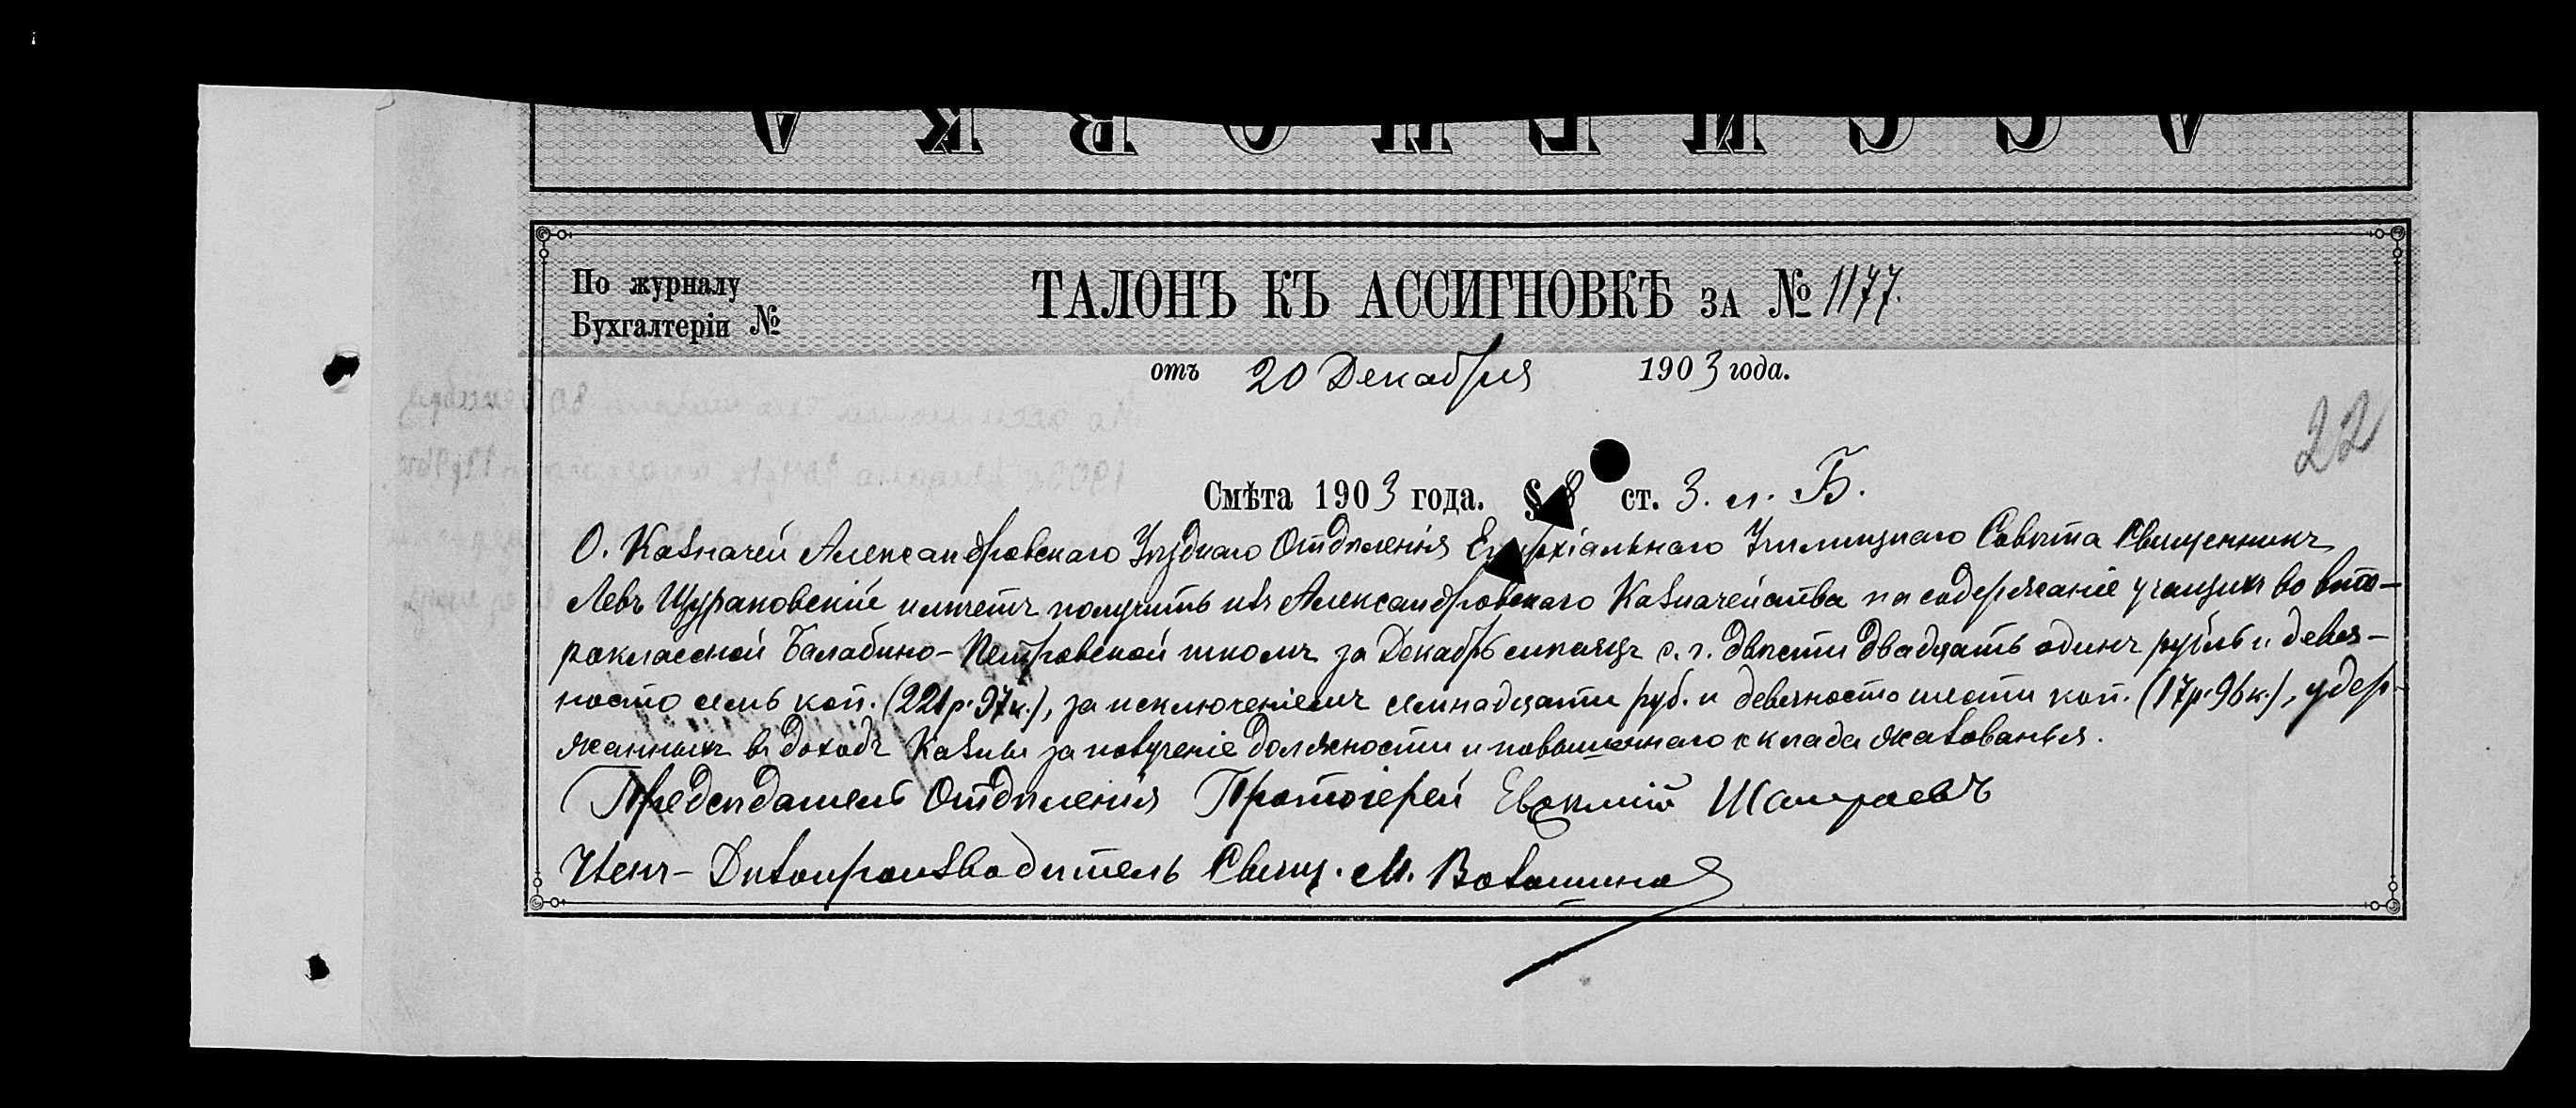 АССИГНОВКА
По журналу
Бухгалтеріи №
ТАЛОНЪ КЪ АССИГНОВКѢ ЗА № 1177.
отъ 20 Декабря 1903 года.
22
Смѣта 1903 года. § 8 ст. 3. л. Б.
О. Казначей Александровскаго Уѣзднаго Отдѣленія Епархіальнаго Училищнаго Совѣта Священникъ
Левъ Щураковскій имѣетъ получить изъ Александровскаго Казначейства на содержаніе учащихъ во вто-
роклассной Балабино-Петровской школѣ за Декабрь мѣсяцъ с. г. двѣсти двадцать одинъ рубль и девя-
носто семь коп. (221 р. 97 к.), за исключеніемъ семнадцати руб. и девяносто шести коп. (17 р. 96 к.), удер-
жанныхъ въ доходъ Казны за полученіе должности и повышеннаго оклада жалованья.
Предсѣдатель Отдѣленія Протоіерей
Членъ-Дѣлопроизводитель Свящ. М.